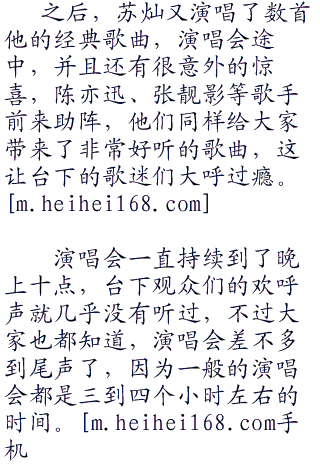 之后，苏灿又演唱了数首
他的经典歌曲，演唱会途
中，并且还有很意外的惊
喜，陈亦迅、张靓影等歌手
前来助阵，他们同样给大家
带来了非常好听的歌曲，这
让台下的歌迷们大呼过瘾。
[m.heihei168.com]
演唱会一直持续到了晚
上十点，台下观众们的欢呼
声就几乎没有听过，不过大
家也都知道，演唱会差不多
到尾声了，因为一般的演唱
会都是三到四个小时左右的
时间。[m.heihei168.com手
机